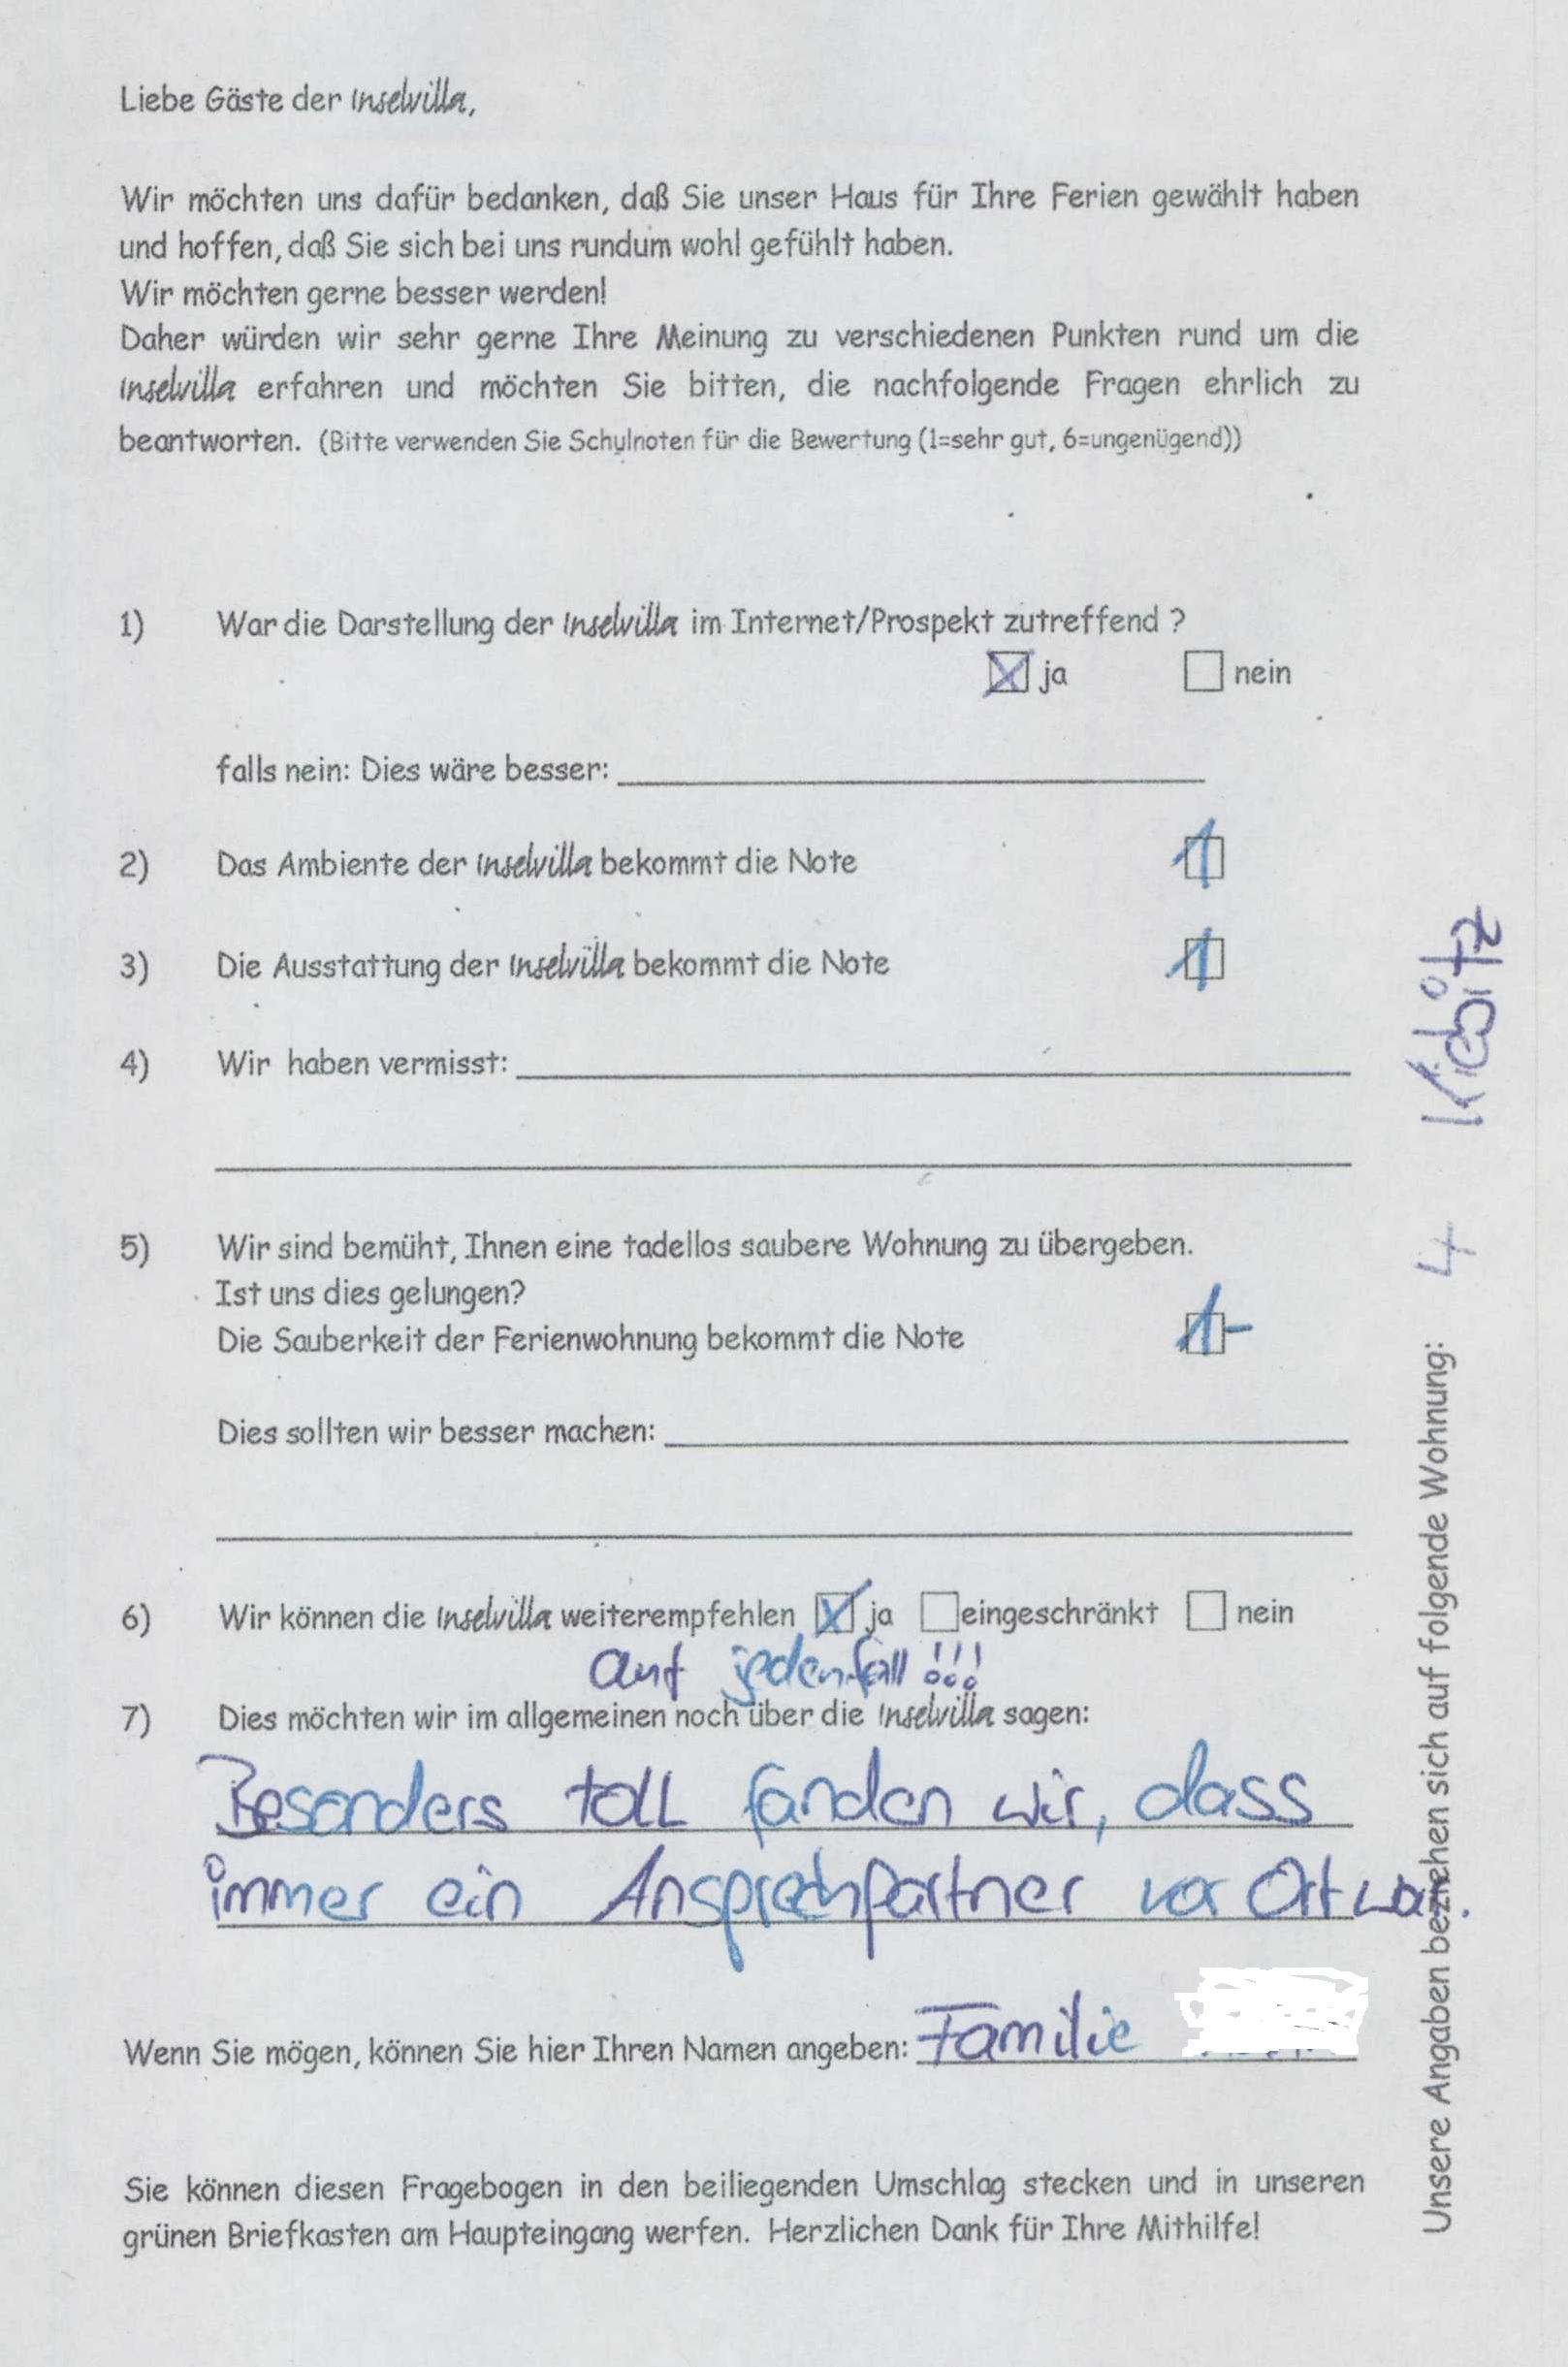 Liebe Gäste der Inselvilla,
Wir möchten uns dafür bedanken, daß Sie unser Haus für Ihre Ferien gewählt haben
und hoffen, daß Sie sich bei uns rundum wohl gefühlt haben.
Wir möchten gerne besser werden!
Daher würden wir sehr gerne Ihre Meinung zu verschiedenen Punkten rund um die
Inselvilla erfahren und möchten Sie bitten, die nachfolgende Fragen ehrlich zu
beantworten. (Bitte verwenden Sie Schulnoten für die Bewertung (1=sehr gut, 6=ungenügend))
1) War die Darstellung der Inselvilla im Internet/Prospekt zutreffend ?
ja nein
falls nein: Dies wäre besser:
2) Das Ambiente der Inselvilla bekommt die Note 1
3) Die Ausstattung der Inselvilla bekommt die Note 1
4) Wir haben vermisst:
5) Wir sind bemüht, Ihnen eine tadellos saubere Wohnung zu übergeben.
Ist uns dies gelungen?
Die Sauberkeit der Ferienwohnung bekommt die Note 1-
Dies sollten wir besser machen:
6) Wir können die Inselvilla weiterempfehlen ja eingeschränkt nein
auf jedenfall!!!
7) Dies möchten wir im allgemeinen noch über die Inselvilla sagen:
Besonders toll fanden wir, dass
immer ein Ansprechpartner vor Ort war.
Wenn Sie mögen, können Sie hier Ihren Namen angeben: Familie
Sie können diesen Fragebogen in den beiliegenden Umschlag stecken und in unseren
grünen Briefkasten am Haupteingang werfen. Herzlichen Dank für Ihre Mithilfe!
Unsere Angaben beziehen sich auf folgende Wohnung: 4 Kiebitz